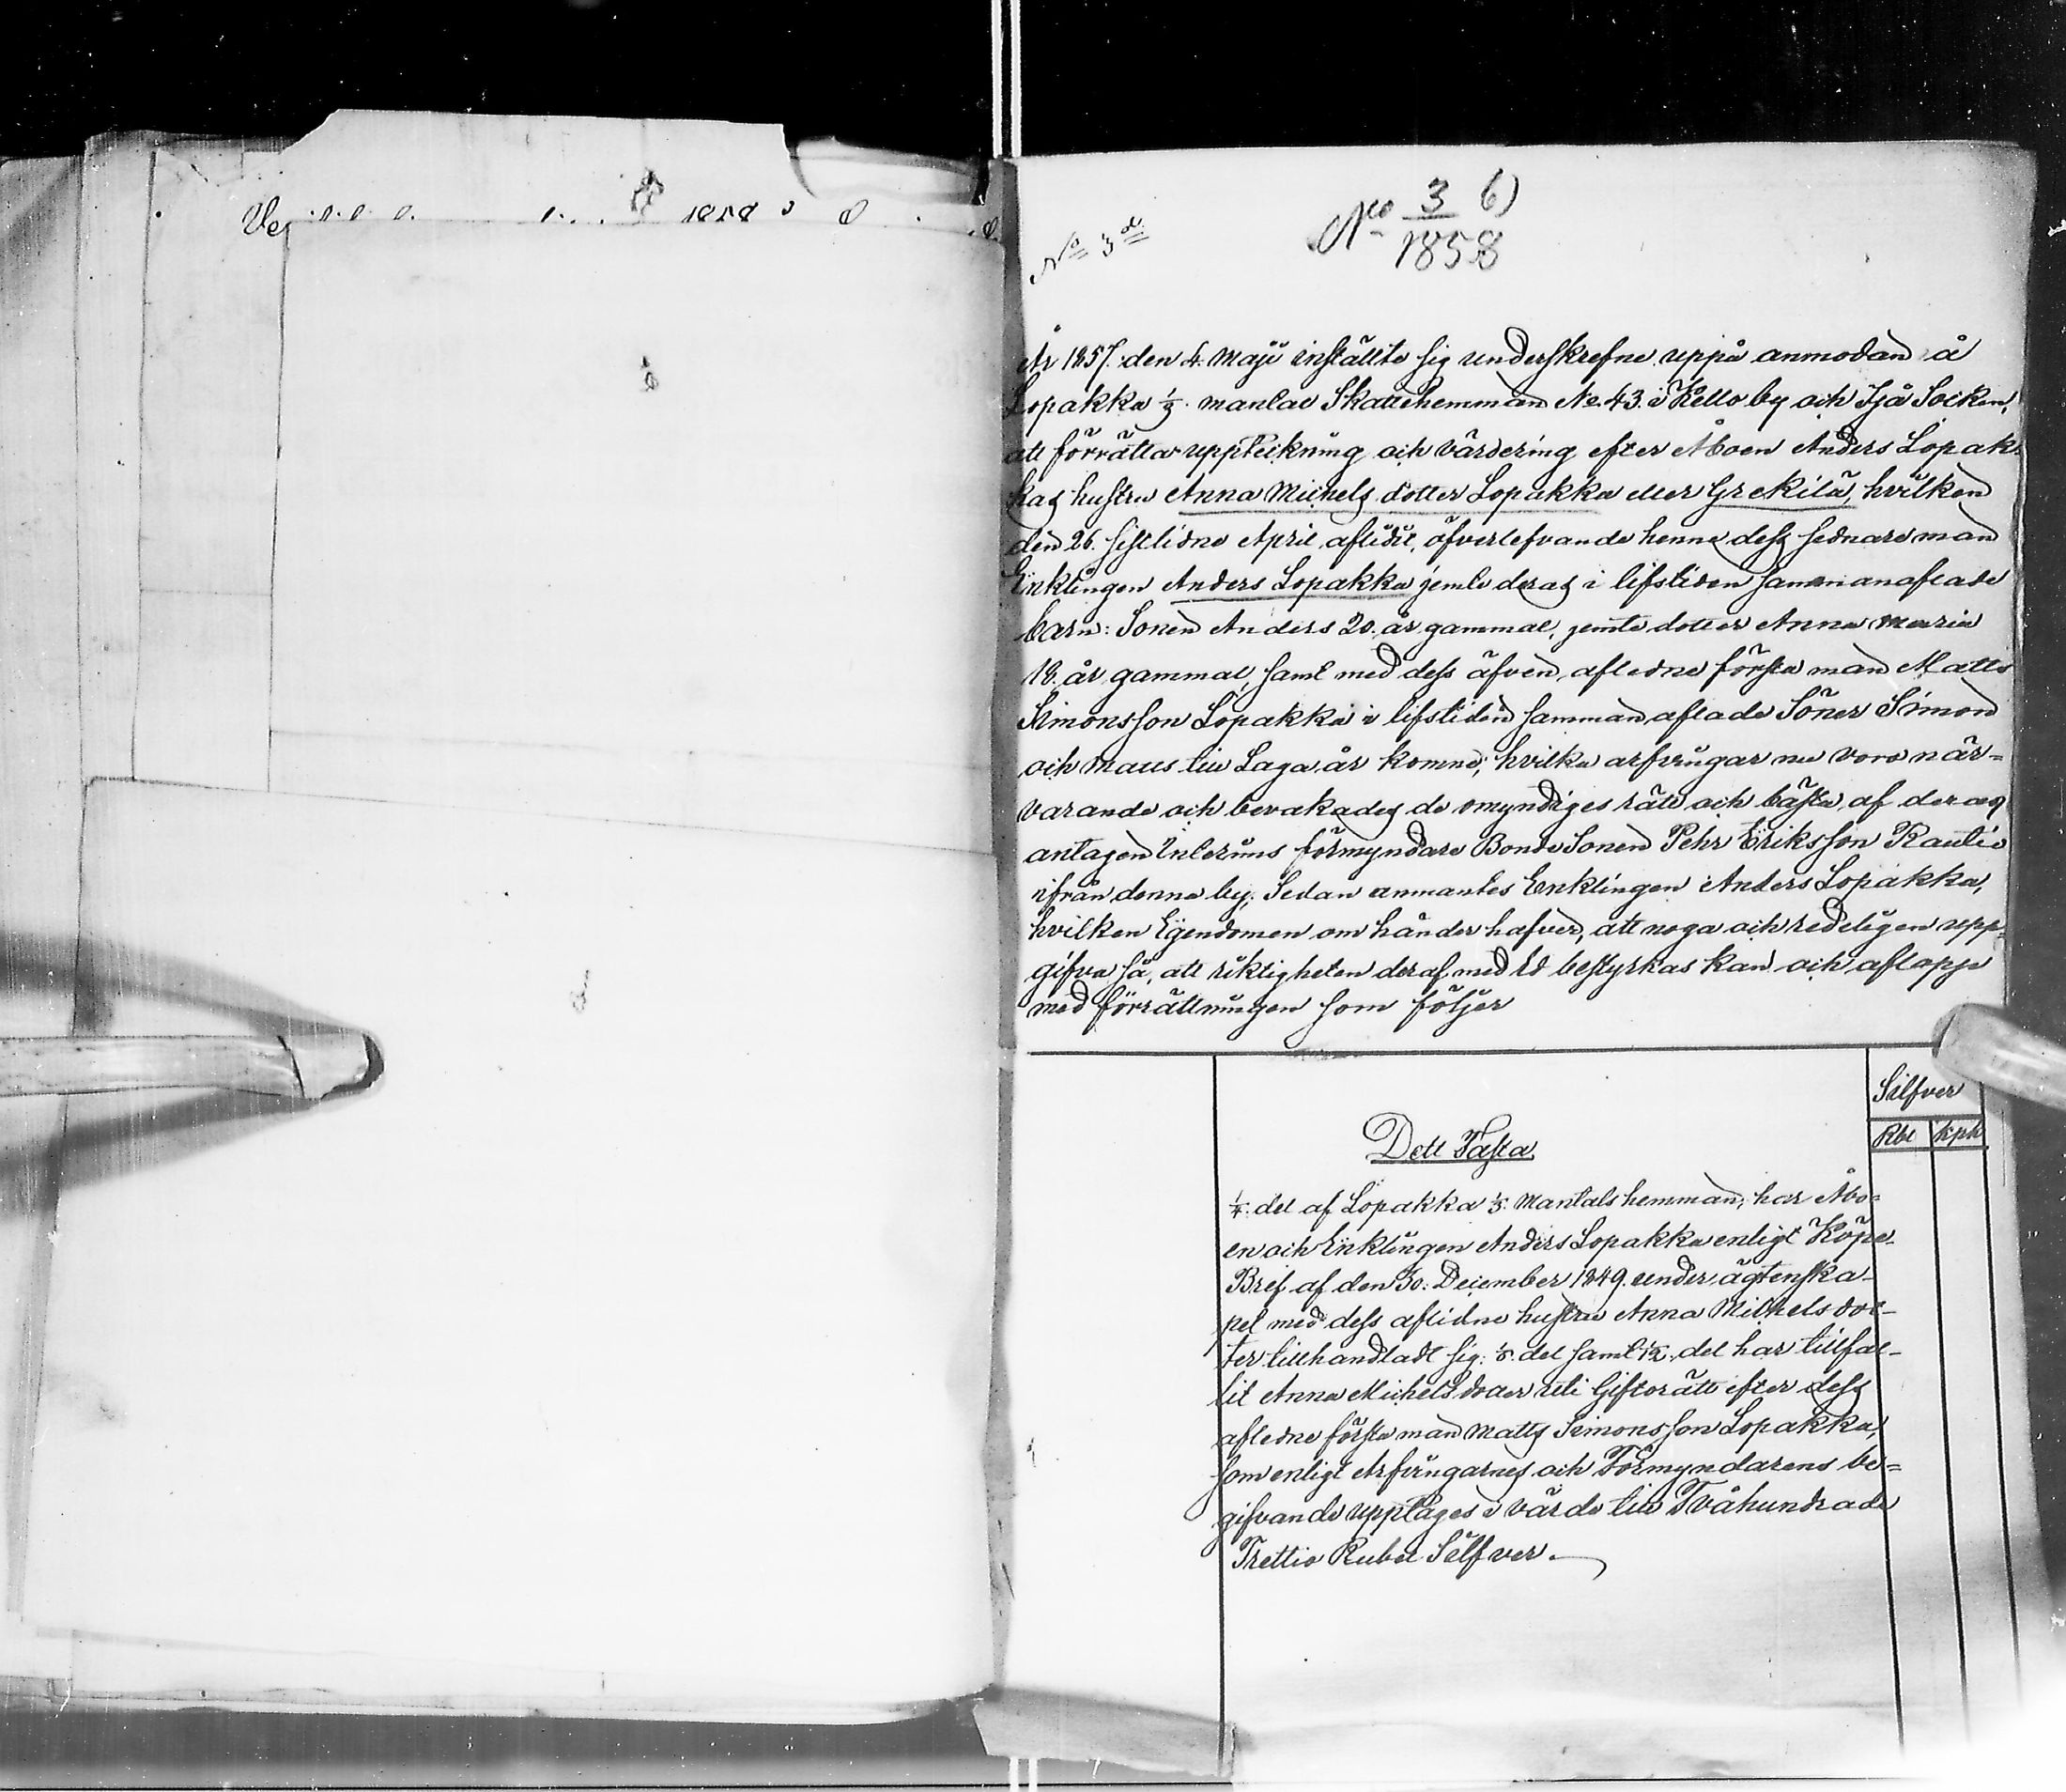 1858
No 3
Nco 3 6)
1858
År 1857. den 4. Maji instälte sig underskrefne uppå anmodan å
Lopakka 1/3. mantal Skattehemman No. 43. i Kello by och Ijå Socken,
att förrätta uppteckning och värdering efter Åboen Anders Lopak-
kas hustru Anna Michels dotter Lopakka eller Grekilä, hvilken
den 26. sistlidne April aflidit, öfverlefvande henne dess sednare man
Enklingen Anders Lopakka jemte deras i lifstiden sammanaflade
barn: Sonen Anders 20. år gammal, jemte dotter Anna Maria
18. år gammal, samt med dess äfven afledne första man Matts
Simonsson Lopakka i lifstiden samman aflade Söner Simon
och Matts till Laga år komne; hvilka arfvingar nu voro när=
varande och bevakades de omyndiges rätt och bästa af deras
antagen Interims förmyndare Bonde Sonen Pehr Eriksson Rautio
ifrån denna by; Sedan anmantes Enklingen Anders Lopakka,
hvilken Egendomen om händer hafver, att noga och redeligen upp=
gifva så, att riktigheten deraf med Ed bestyrkas kan och aflopp
med förrättningen som följer
Silfver
Rbl kpk
Dett Fasta
1/4. del af Lopakka 1/3. Mantals hemman, har Åbo=
en och Enklingen Anders Lopakka enligt Köpe-
Bref af den 30. December 1849. under ägtenska-
pet med dess aflidne hustru Anna Michels dot-
ter tillhandladt sig: 1/8. del samt 1/12. del har tillfal-
lit Anna Michels dotter uti Giftorätt efter dess
afledne första man Matts Simonsson Lopakka,
som enligt Arfvingarnes och Förmyndarens be=
gifvande upptages i värde till Tvåhundrade
Trettio Rubel Silfver.